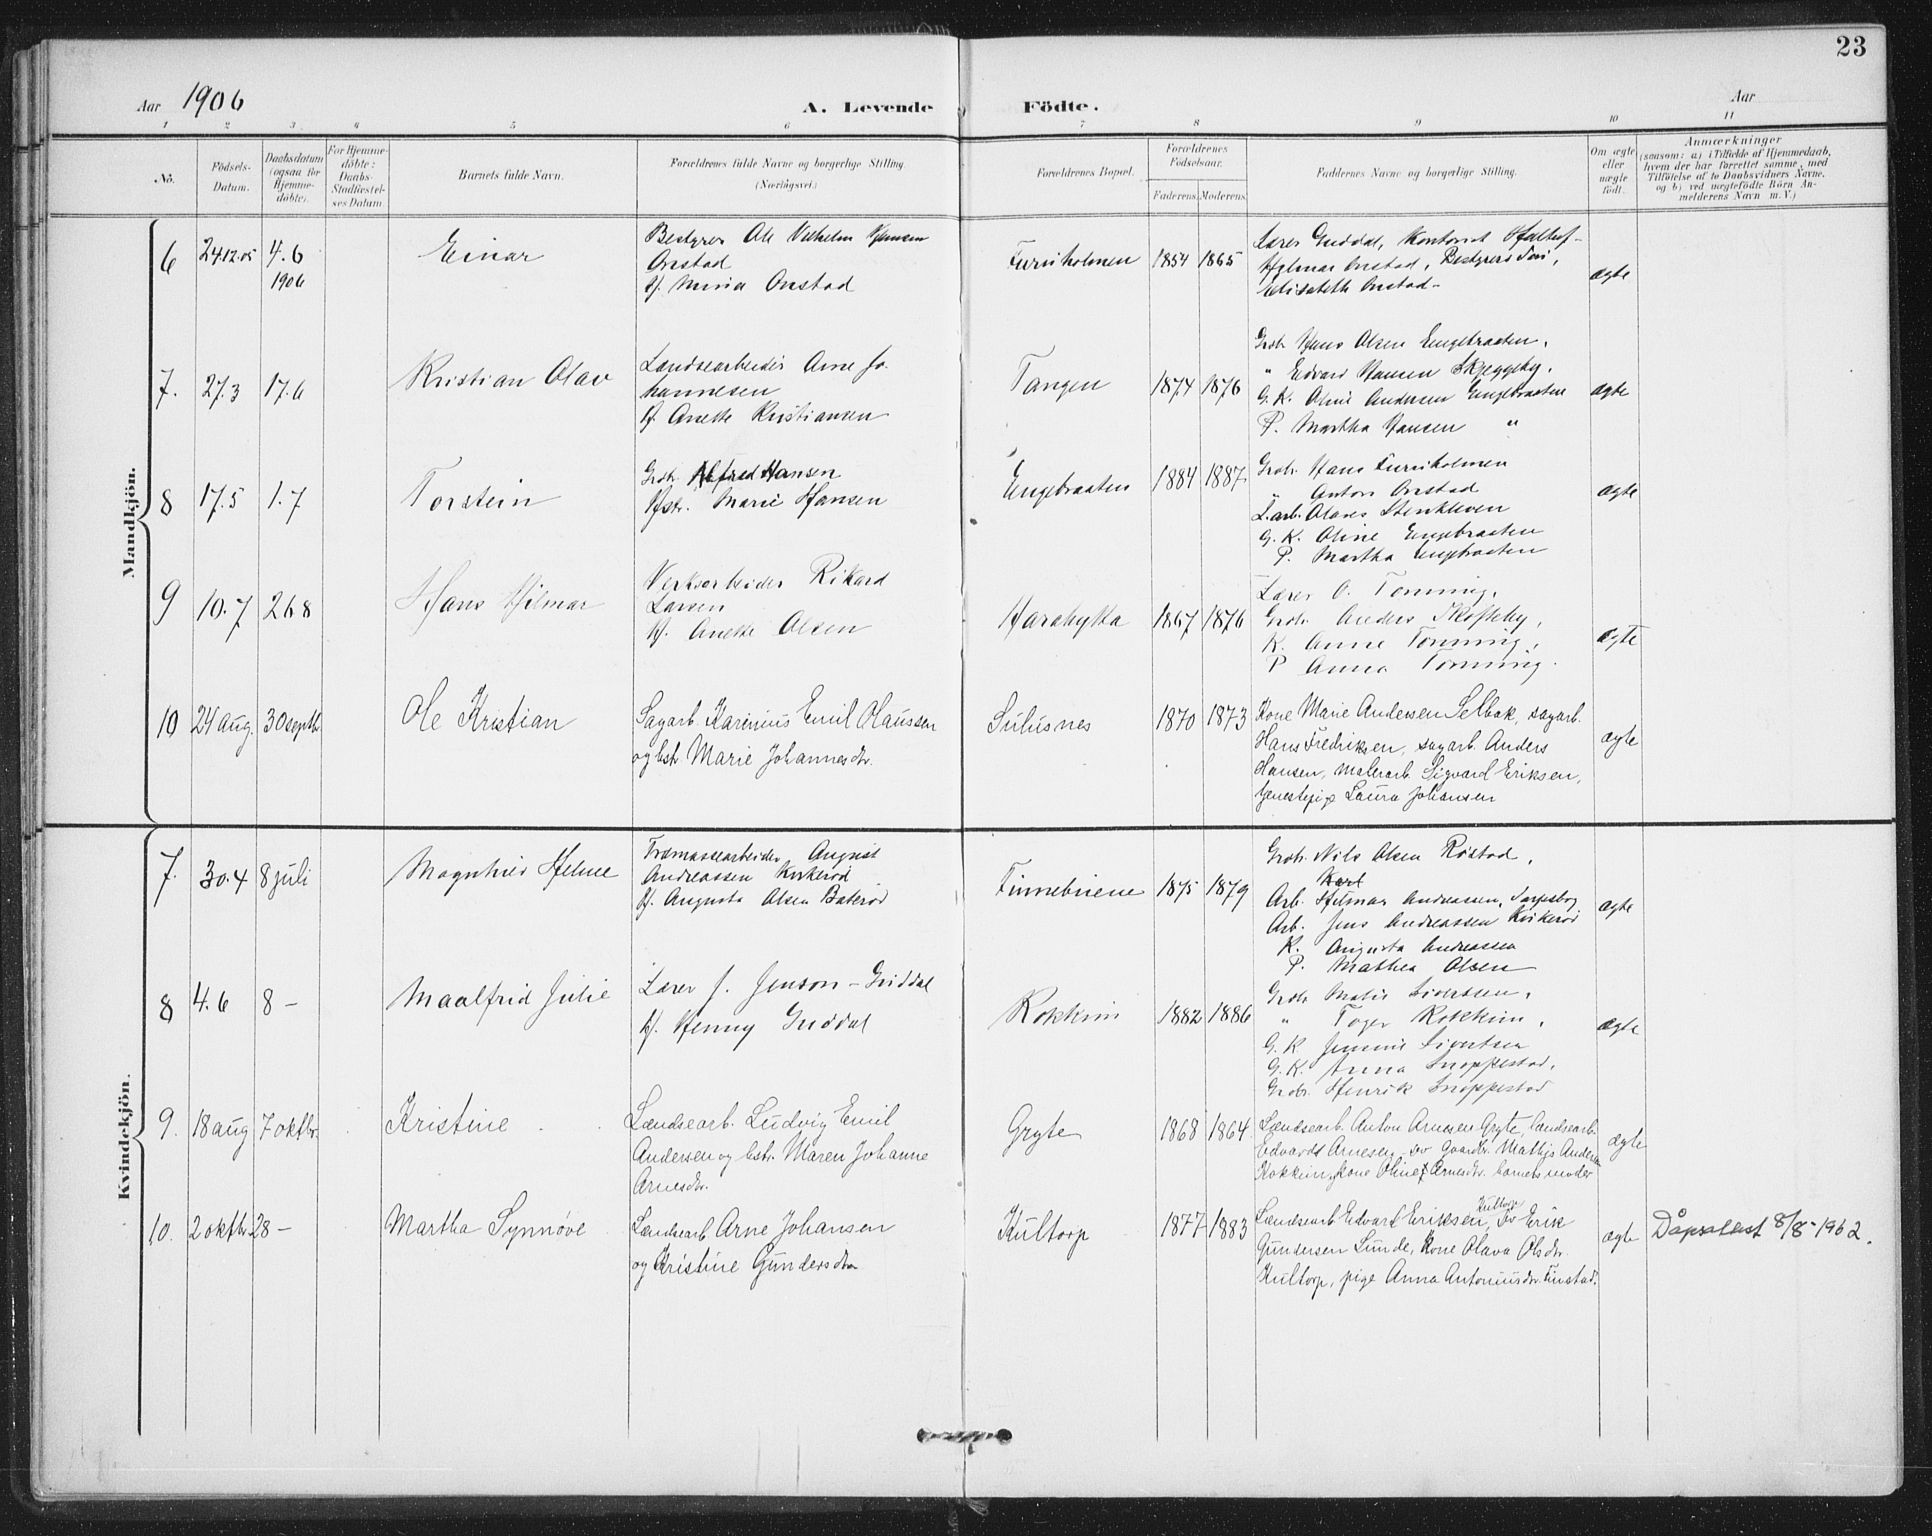 23
Aar 1906
A. Levende Födte.
Aar
1 2 3 4 5 6 7 8 9 10 11
No.
Födsels-Datum.
Daabsdatum (ogsaa for Hjemme-döbte).
For Hjemme-döbte: Daabs-Stadfæstel-ses Datum
Barnets fulde Navn.
Forældrenes fulde Navne og borgerlige Stilling.
(Næringsvei.)
Forældrenes Bopæl.
Forældrenes Födselsaar.
Faderens. Moderens.
Faddernes Navne og borgerlige Stilling.
Om ægte eller uægte födt.
Anmærkninger
(saasom: a) i Tilfælde af Hjemmedaab, hvem der har forrettet samme, med Tilföielse af to Daabsvidners Navne. og b) ved uægtefödte Börn An-melderens Navn m. V.)
Mandkjön.
6 24.12.05 4.6 1906 Einar
Bestyrer Ole Vilhelm Hansen
Onstad
H. Mina Onstad
Furuholmen 1854 1865
Lærer Guddal, Kontorist
Hjalmar Onstad, Bestyrer
Elisabeth Onstad
ægte
7. 27.3 17.6 Kristian Olav
Lændsearbeider Arne Jo-
hannesen
H. Anette Kristiansen
Tangen 1874 1876
Grdr. Hans Olsen Engebraaten,
" Edvard Hansen Skjeggeby,
G. K. Oline Andersen Engebraaten
P. Martha Hansen "
ægte
8 17.5 1.7 Torstein
Grdr. Alfred Hansen
Hstr. Marie Hansen
Engebraaten 1884 1887
Grdr. Hans Furuholmen
" Anton Onstad
L.arb. Olaves Stenkleven
G. K. Oline Engebraaten
P. Martha Engebraaten
ægte
9 10.7 26.8 Hans Hilmar
Verksarbeider Rikard
Larsen
H. Anette Olsen
Harahytta 1867 1876
Lærer O. Tonning,
Grdr. Anders Skofteby,
K. Anne Tonning,
P Anna Tonning.
ægte
10 24 aug. 30 septb. Ole Kristian
Sagarb. Karinius Emil Olaussen
og hstr. Marie Johannesdtr.
Sulusnes 1870 1873
Kone Marie Andersen Selbak, sagarb.
Hans Fredriksen, sagarb. Anders
Hansen, malerarb. Sigvard Eriksen,
tjenestepige Laura Johansen
ægte
Kvindekjön.
7. 30.4 8 juli Magnhild Helene
Træmassearbeider August
Andreassen Kirkerød
H. Augusta Olsen Baterød
Finnebuene 1875 1879
Grdr. Nils Olsen Røstad,
Karl
Arb. Hilmar Andreassen, Sarpsborg
Arb. Jens Andreassen Kirkerød
K. Augusta Andreassen
P. Mathea Olsen
ægte
8 4.6 8 - Maalfrid Julie
Lærer J. Jenson - Guddal
H. Henny Guddal
Rokkim 1882 1886
Grdr. Mathis Sivertsen,
" Toger Rokkim,
G. K. Jennie Sivertsen
G. K. Anna Snoppestad,
Grdbr. Henrik Snoppestad
ægte
9. 18 aug 7 oktbr. Kristine
Lændsearb. Ludvig Emil
Andersen og hstr. Maren Johanne
Arnesdtr.
Gryte 1868 1864
Lændsearb. Anton Arnesen Gryte, Lændsearb.
Edvard Arnesen, gaardbr. Mathis Andersen
Rokkim, kone Oline Arnesdtr. barnets moder
ægte
10. 2 oktbr. 28 - Martha Synnøve
Lændsearb Arne Johansen
og Kristine Gundersdtr
Kultorp 1877 1883
Kultorp
Lændsearb Edvart Eriksen, Erik
Gundersen Lunde, kone Olava Olsdtr.
Kultorp, pige Anna Antoniusdtr. Finstad.
ægte
Dåpsattest 8/8-1962.